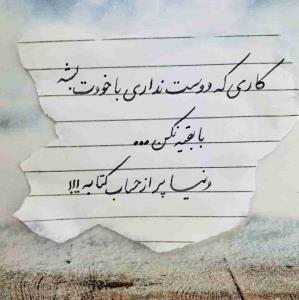 کاری که دوست نداری با خودت بشه
با بقیه نکن...
دنیا پر از حساب کتابه!!!